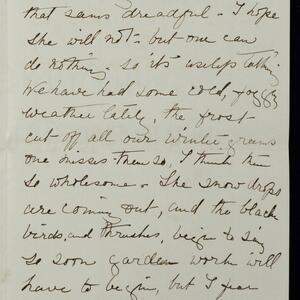 that seems dreadful - I hope
she will not - but one can
do nothing - so it's useless talking
We have had some cold, foggy
weather lately, the frost
cut off all our winter greens
one misses them so, I think them
so wholesome - The snow drops
are coming out, and the black
birds, and thrushes, begin to sing
so soon garden work will
have to begin, but I fear